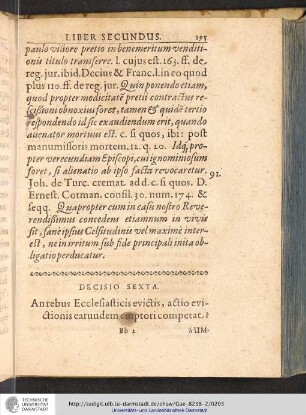 LIBER SECUNDUS. 195
paulo viliore pretio in benemeritum venditi-
onis titulo transferre. l. cujus est. 163. ff. de
reg. jur. ibid. Decius & Franc. l. in eo quod
plus 110. ff. de reg. jur. Quin ponendo etiam,
quod propter modicitatē pretii contractus re-
scissioni obnoxius foret, tamen & quidē tertio
respondendo id sic exaudiendum erit, quando
alienator mortuus est. c. si quos, ibi: post
manumissoris mortem. 12. q. 20. Idq; pro-
pter verecundiam Episcopi, cui ignominiosum
foret, si alienatio ab ipso facta revocaretur.
91.
Joh. de Turc. cremat. add. c. si quos. D.
Ernest. Cotman. consil. 30. num. 174. &
seqq. Quapropter cum in casu nostro Reve-
rendissimus concedens etiamnum in vivis
sit, sanè ipsius Celsitudinis vel maximè inter-
est, ne in irritum sub fide principali inita ob-
ligatio perducatur.
DECISIO SEXTA.
An rebus Ecclesiasticis evictis, actio evi-
ctionis earundem emptori competat?
Bb 2 SUM-
TECHNISCHE
UNIVERSITÄT
DARMSTADT
http://tudigit.ulb.tu-darmstadt.de/show/Gue-8238-2/0203
Universitäts- und Landesbibliothek Darmstadt